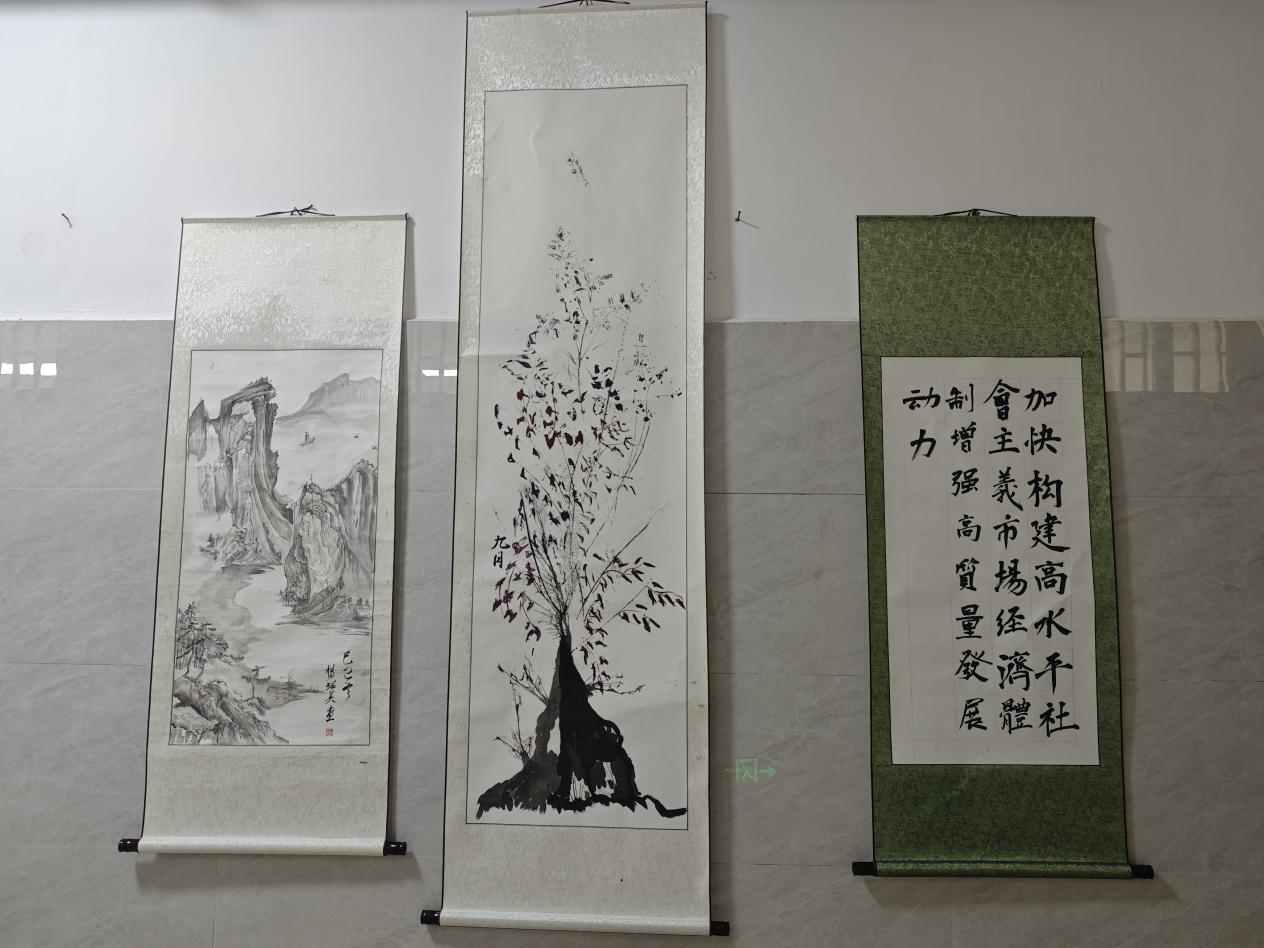 加快构建高水平社
會主義市場经濟體
制增强高質量發展
动力
九月